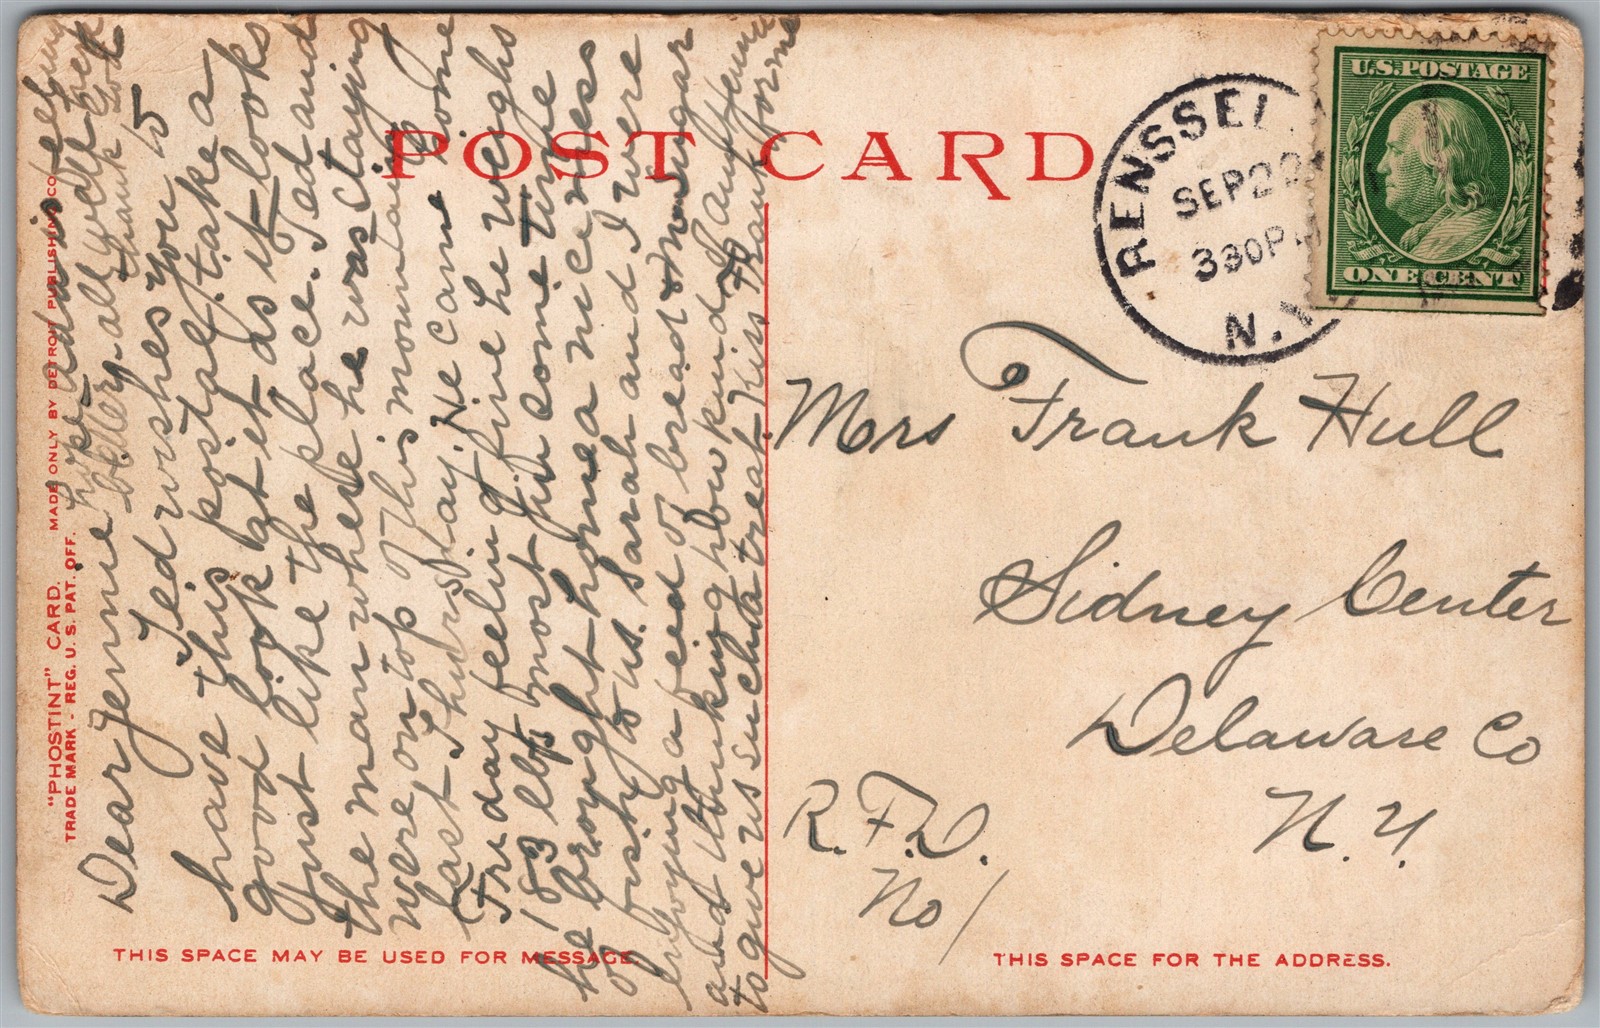 POST CARD
RENSSEL
SEP 22
330P
N.Y.
U.S. POSTAGE
ONE CENT
Mrs Frank Hull
Sidney Center
Delaware Co
N.Y.
R.F.D.
No 1
THIS SPACE FOR THE ADDRESS.
THIS SPACE MAY BE USED FOR MESSAGE.
"PHOSTINT" CARD. MADE ONLY BY DETROIT PUBLISHING CO.
TRADE MARK - REG. U. S. PAT. OFF.
Dear Jennie
Ted wishes you to
have this postal, take a
good look at it as it looks
Just like the place. Ted and
the man where he was staying
were on top of this mountain
last Thursday. He came home
Friday feeling fine he weighs
183 lbs most fun come time
he brought home a nice mess
of fish to us. Sarah and I were
enjoying a feed of bread & sugar
and thinking how kind Aunt Jennie
to give us such a treat. Kiss Frank for me
hope Ada is feeling
better, all well here
thank God